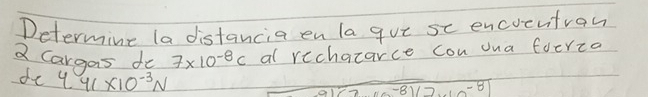 Determine la distancia en la que se encuentran
2 cargas de 7x10⁻⁸c al rechazarce con una fuerza
de 4.41 x10⁻³N